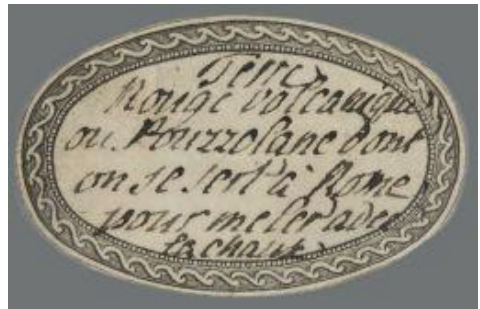 Terre
Rouge volcanique
ou Pouzzolane dont
on se sert à Rome
pour meler adec
la chaux